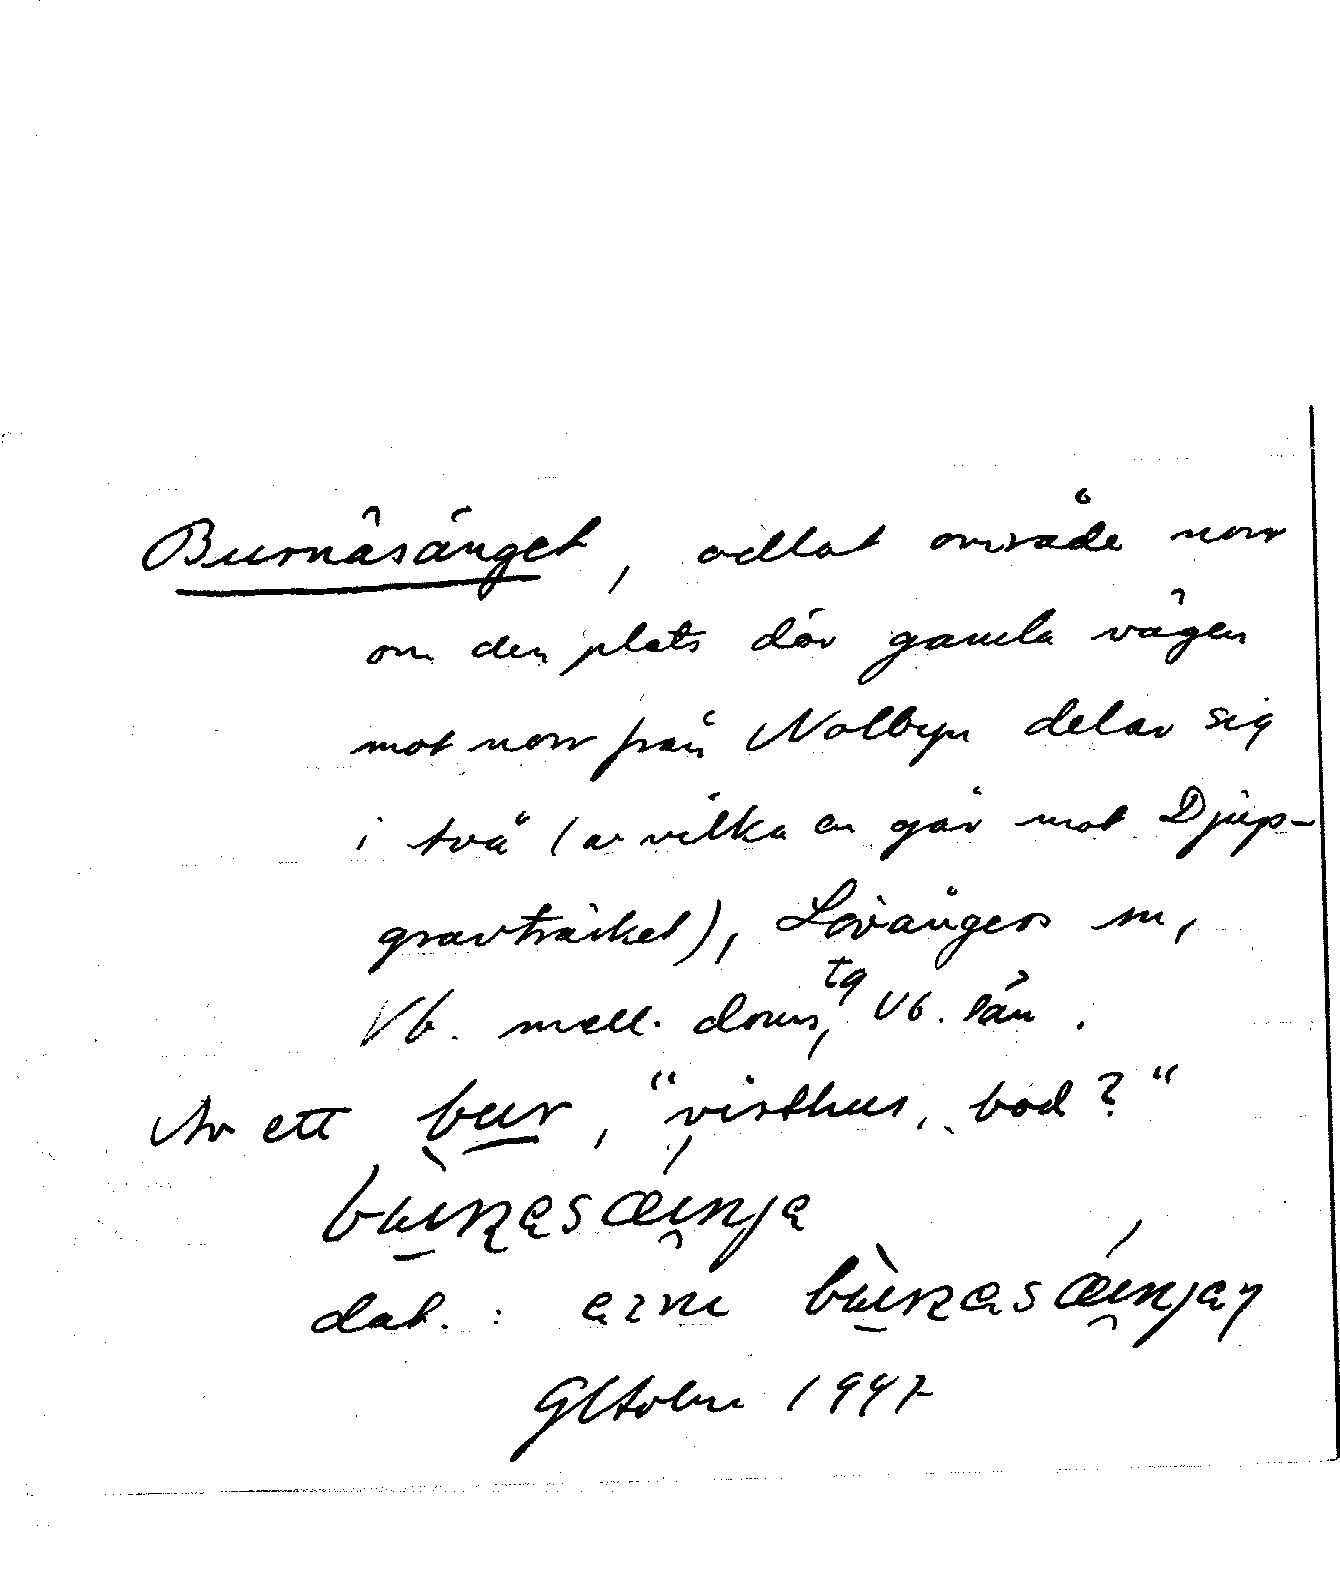 Burnäsänget, odlat område norr
om den plats där gamla vägen
mot norr från Nolbyn delar sig
i två (av vilka en går mot Djup-
gravträsket), Lövångers sn,
Vb. mell. doms tg, Vb. län.
Av ett bur, "visthus, bod?"
dat.:
1947